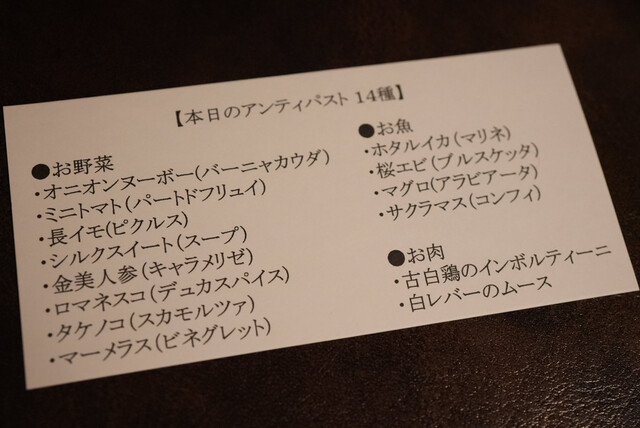 【本日のアンティパスト 14種】
●お野菜
・オニオンヌーボー(バーニャカウダ)
・ミニトマト(パートドフリュイ)
・長イモ(ピクルス)
・シルクスイート(スープ)
・金美人参(キャラメリゼ)
・ロマネスコ(デュカスパイス)
・タケノコ(スカモルツァ)
・マーメラス(ビネグレット)
●お魚
・ホタルイカ(マリネ)
・桜エビ(ブルスケッタ)
・マグロ(アラビアータ)
・サクラマス(コンフィ)
●お肉
・古白鶏のインボルティーニ
・白レバーのムース